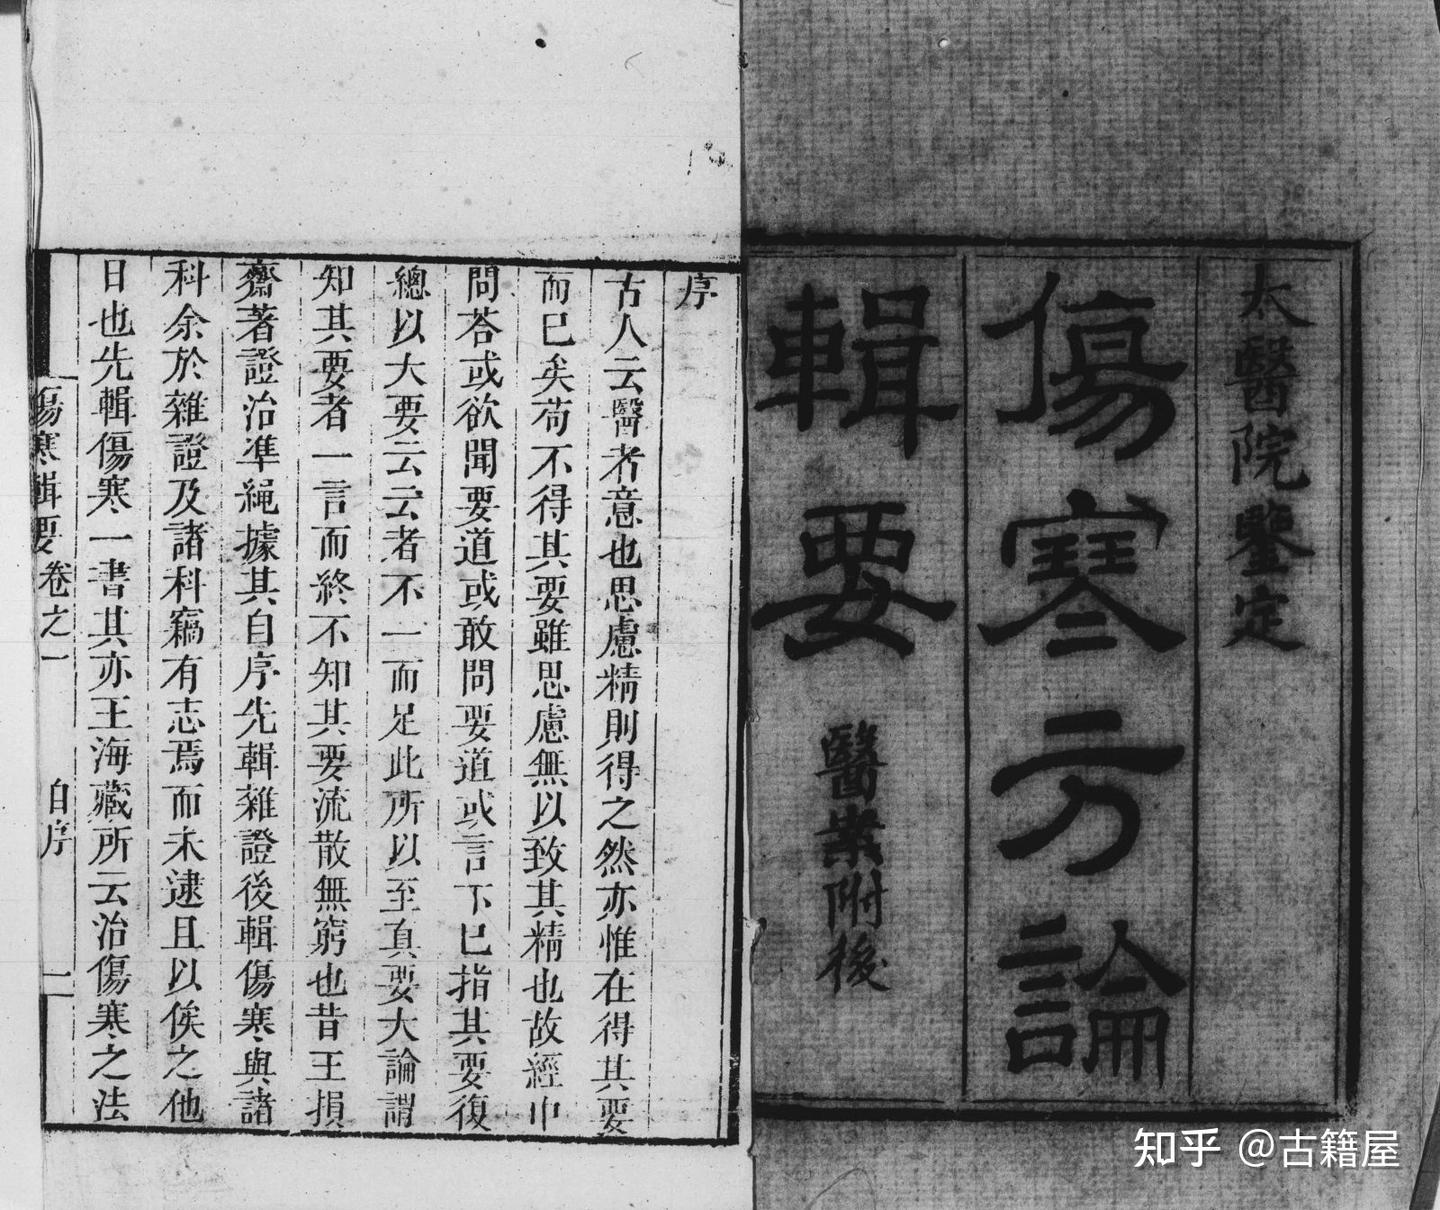 太醫院鑒定
傷寒方論
輯要
醫案附後
序
古人云醫者意也思慮精則得之然亦惟在得其要
而已矣苟不得其要雖思慮無以致其精也故經中
問荅或欲聞要道或敢問要道或言下已指其要復
總以大要云云者不一而足此所以至真要大論謂
知其要者一言而終不知其要流散無窮也昔王損
齋著證治準繩據其自序先輯雜證後輯傷寒與諸
科余於雜證及諸科竊有志焉而未逮且以俟之他
日也先輯傷寒一書其亦王海藏所云治傷寒之法
傷寒輯要 卷之一 自序 一
知乎 @古籍屋